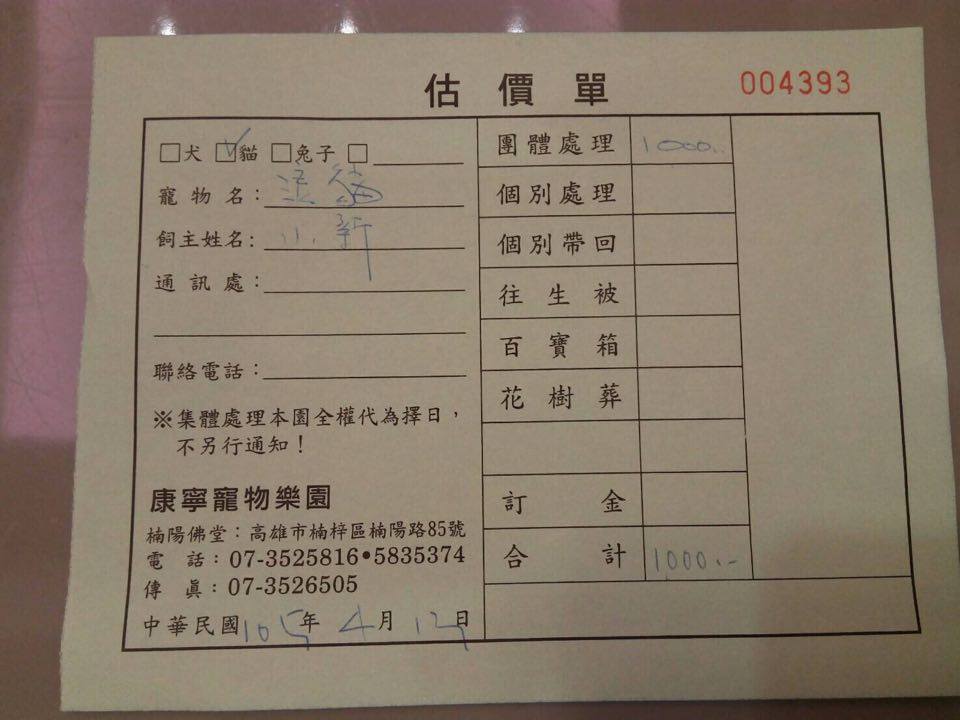 估價單
004393
□犬 ☑貓 □兔子 □
寵物名：
飼主姓名：小新
通訊處：
聯絡電話：
※集體處理本園全權代為擇日，
不另行通知！
康寧寵物樂園
楠陽佛堂：高雄市楠梓區楠陽路85號
電話：07-3525816•5835374
傳真：07-3526505
中華民國105年4月12日
團體處理 1000.-
個別處理
個別帶回
往生被
百寶箱
花樹葬
訂金
合計 1000.-